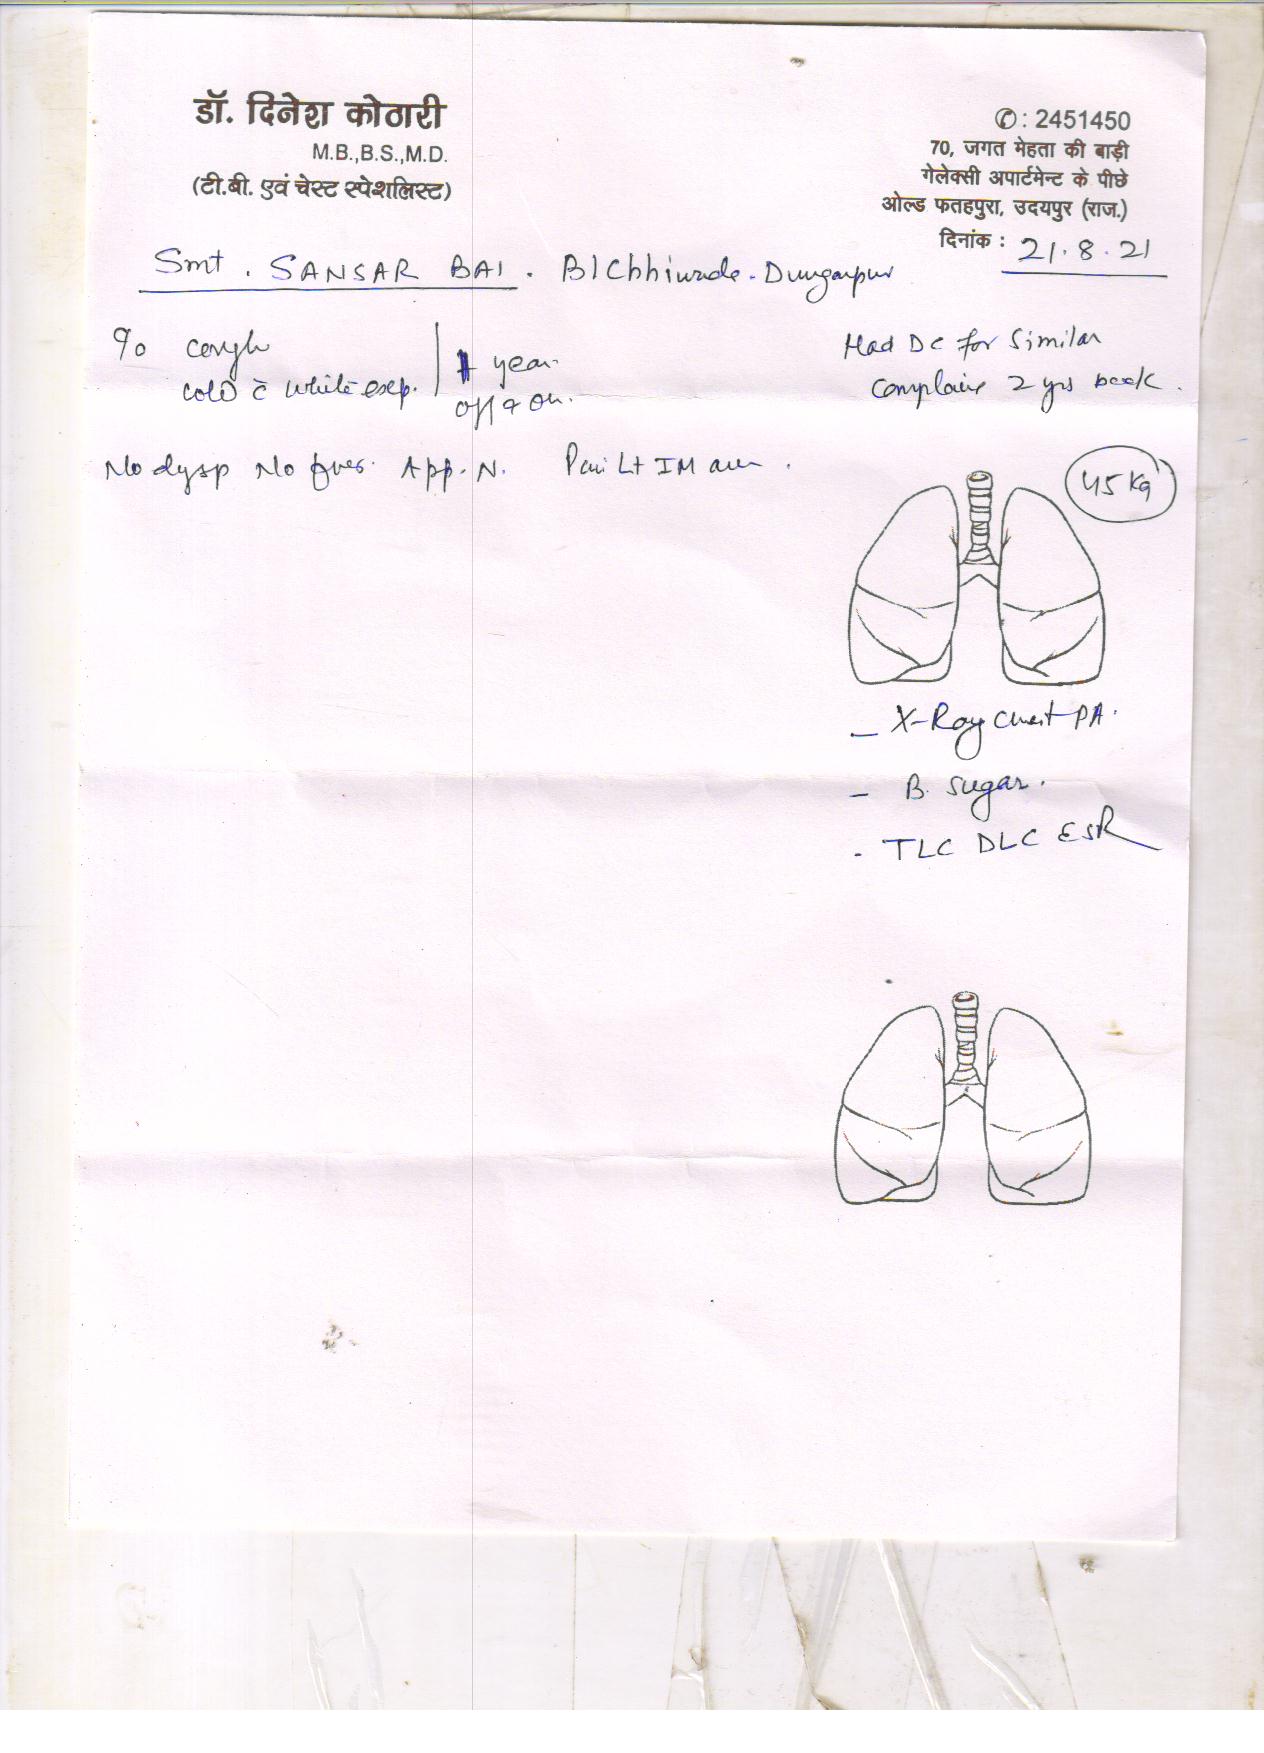 डॉ. दिनेश कोठारी
M.B.,B.S.,M.D.
(टी.बी. एवं चेस्ट स्पेशलिस्ट)
✆: 2451450
70, जगत मेहता की बाड़ी
गेलेक्सी अपार्टमेन्ट के पीछे
ओल्ड फतहपुरा, उदयपुर (राज.)
दिनांक : 21.8.21
Smt. SANSAR BAI.
Dungarpur
c/o cough
cold c̄ white exp.
year
off & on.
Had DC for Similar
2 yrs back.
No dysp No fever. App. N. Pain Lt IM area.
45 Kg
- X-Ray Chest PA.
- B. Sugar.
- TLC DLC ESR